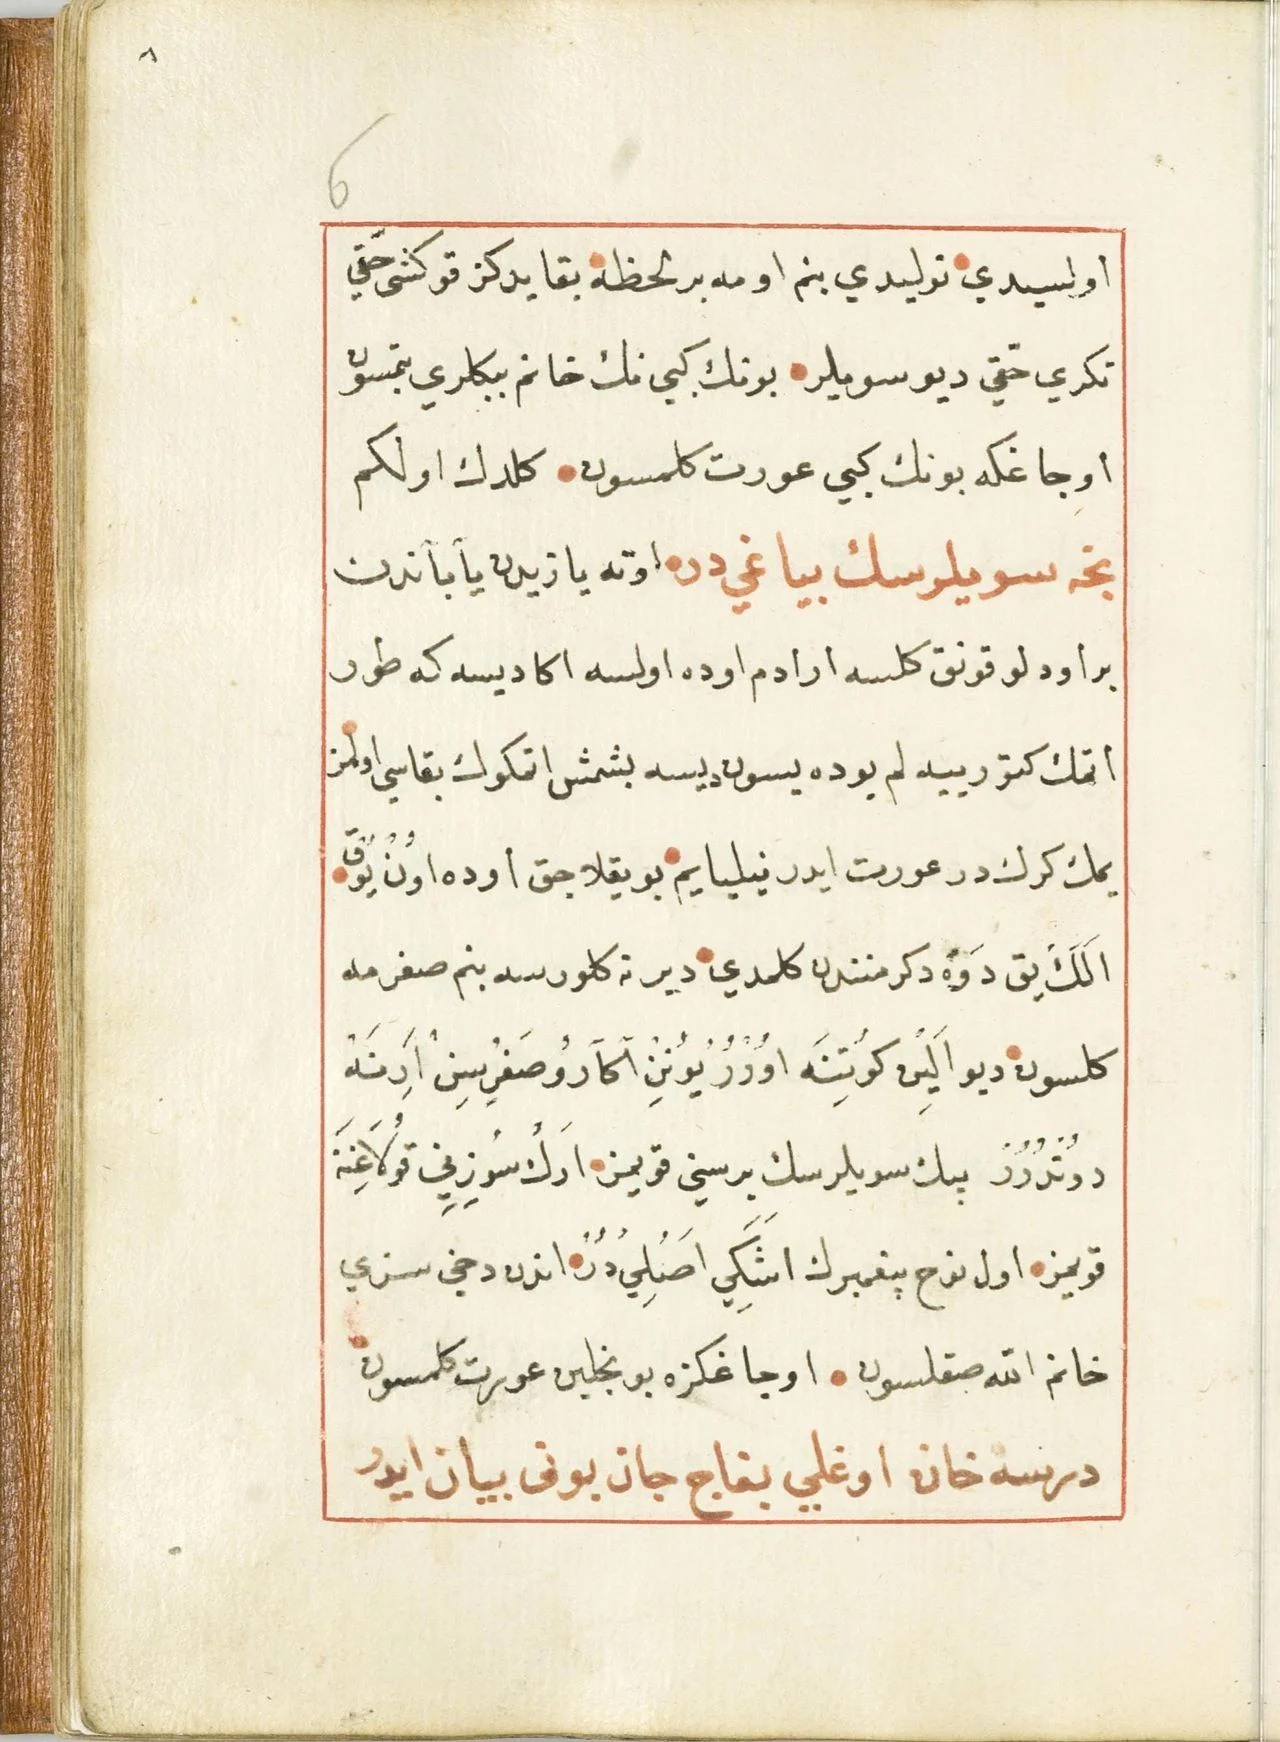 ٨
6
اولسیدی نولیدی بنم اومه بر لحظه بقایدکز قوکشی حقّی
تکری حقّی دیو سویلر بونك کبی نك خانم ببکلری بتمسون
اوِجاغکه بونك کبی عورت کلمسون کلدك اولکم
نجه سویلرسك بیاغی دره اوته یازیدن یابانَدن
بر اودلو قونق کلسه ار ادم اوده اولسه اکا دیسه که طور
اتمك کتور ییه لم بو ده یسون دیسه بشمش اتمکوك بقاسی اولمز
یمك کرك در عورت ایدر نیلیایم بو یقلاجق اوده اُونْ یُوق
اَلَكْ یق دَوَه دکرمنندن کلمدی دیر نه کلورسه بنم صغرمه
کلسون دیو اَلِینْ کوُتِنَه اوُرُرْ یوُنِنْ اَکَارُو صَغْرِیسِنْ اَرِنَه
دوُندُرُرْ بیك سویلرسك برسنی قویمز اَرِكْ سُوزِینِی قوُلَاغِنَه
قویمز اول نوح پیغمبرك اَشَکِی اَصْلِیدُرْ اندن دخی سزی
خانم الله صقلسون اوجاغکزه بونجلین عورت کلمسون
درسه خان اوغلی بغاج جان بونی بیان ایدر